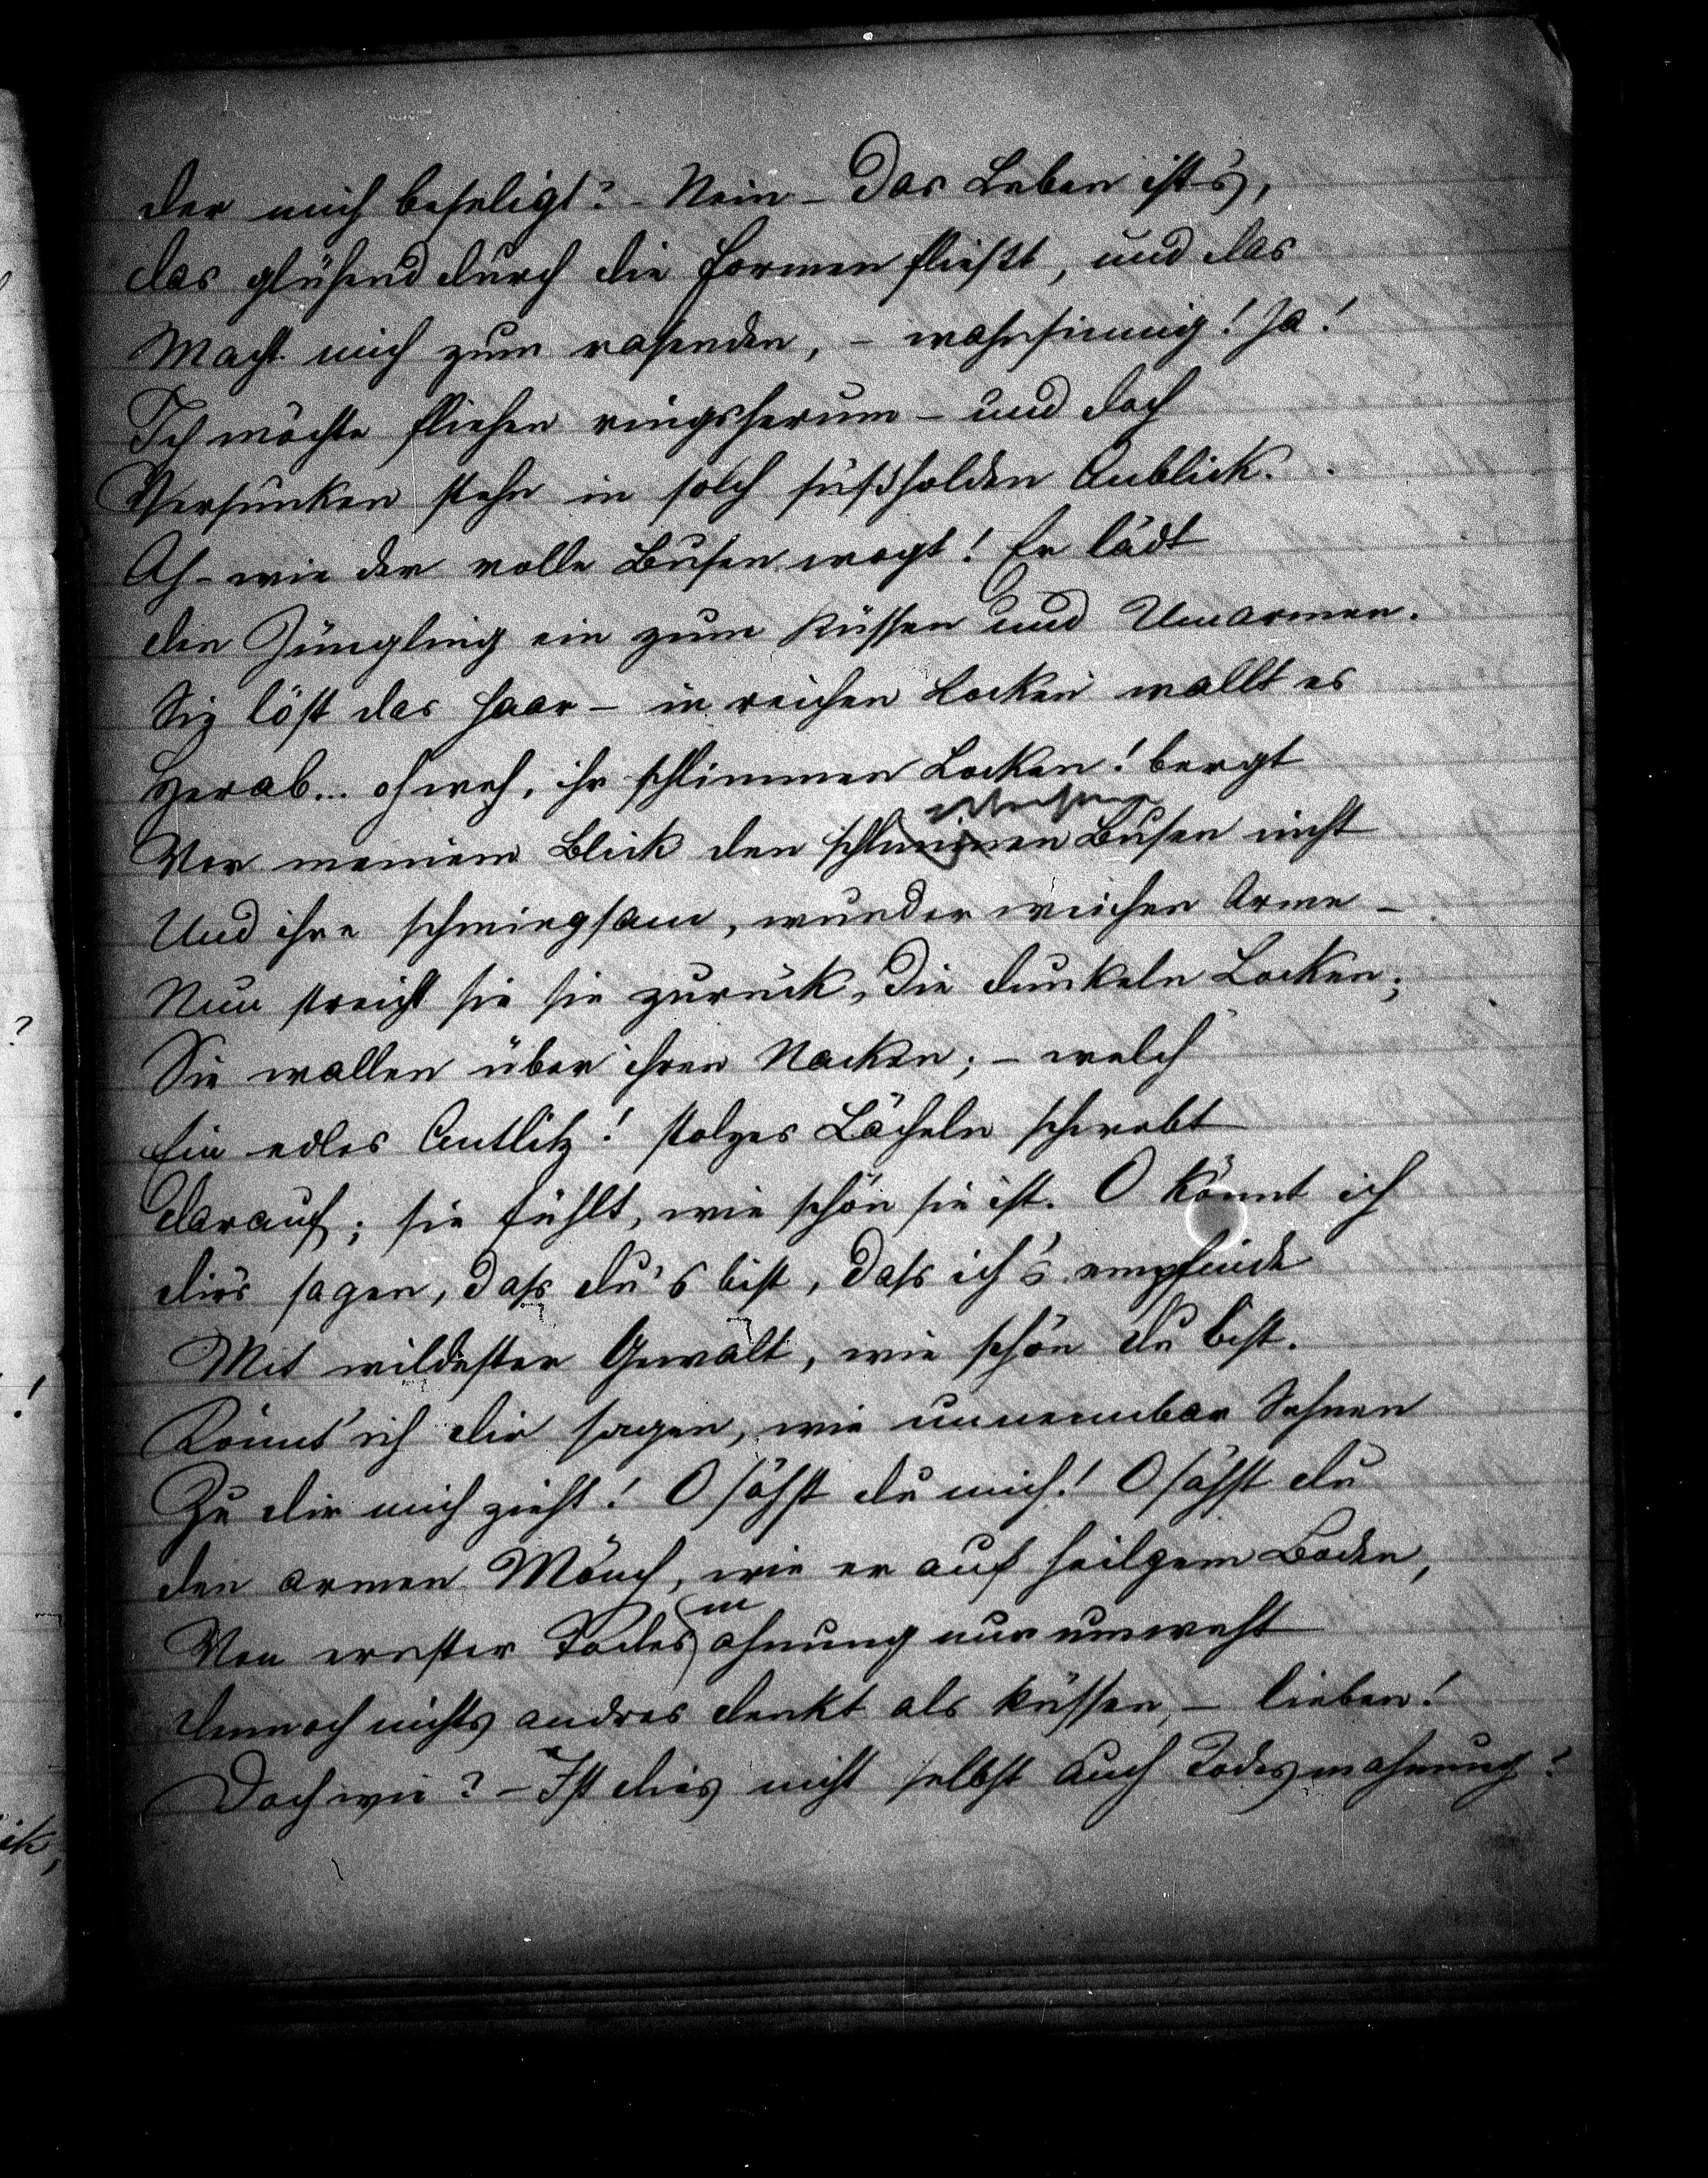 der mich beseligt? - Nein - Das Leben ist's,
das glühend durch die Formen fließt, und das
Macht mich zum rasenden, - wahnsinnig! Ja!
Ich möchte fliehen ringsherum - und doch
Versunken stehn in solch süßholden Anblick.
Ah - wie der volle Busen wogt! Er lädt
den Jüngling ein zum Küssen und Umarmen.
Sie löst das Haar - in reichen Locken wallt es
Herab... oh weh, ihr schlimmen Locken! bergt
Vor meinem Blick den schlimmen Busen nicht
Und ihre schmiegsam, wunder weichen Arme -
Nun streicht sie sie zurück, die dunkeln Locken;
Sie wallen über ihren Nacken; - welch
Ein edles Antlitz! stolzes Lächeln schwebt
darauf; sie fühlt, wie schön sie ist. O könnt ich
dir's sagen, daß du's bist, daß ich's empfinde
Mit wildester Gewalt, wie schön du bist.
Könnt' ich dir sagen, wie unnennbar Sehnen
Zu dir mich zieht! O sähst du mich! O sähst du
den armen Mönch, wie er auf heilgem Boden,
Von ernster Todes m ahnung nur umweht
dennoch nichts andres denkt als küssen, - lieben!
Doch wie? - Ist dies nicht selbst auch Todesmahnung?